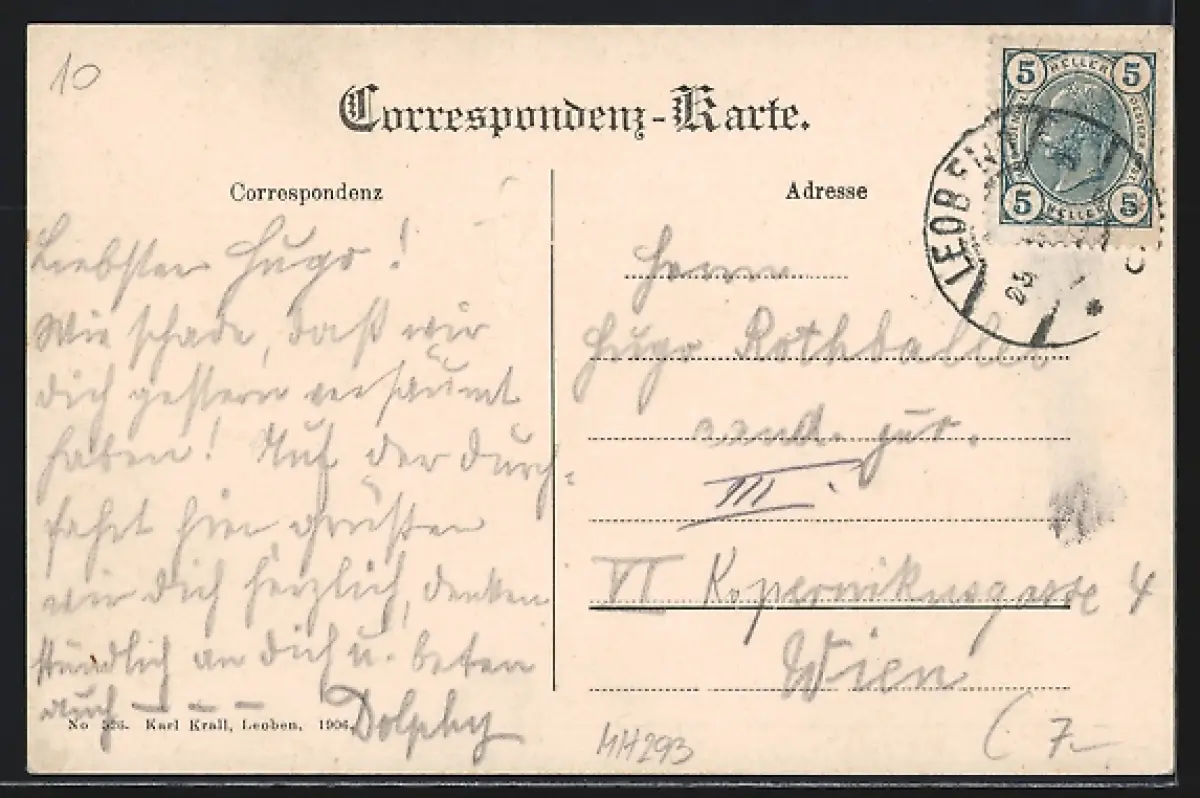 10
Correspondenz-Karte.
Correspondenz
Liebster Hugo!
Wie schade, daß wir
dich gestern versäumt
haben! Auf der Durch-
fahrt hier grüßen
wir dich herzlich, denken
stündlich an dich u. beten
auch – – –
Dolphy
No 526. Karl Krall, Leoben, 1906.
Adresse
Herrn
Hugo
cand. jur.
III.
VI Kopernikusgasse 4
Wien
5 HELLER 5
5 HELLER 5
LEOBEN
25
MH293
(7-